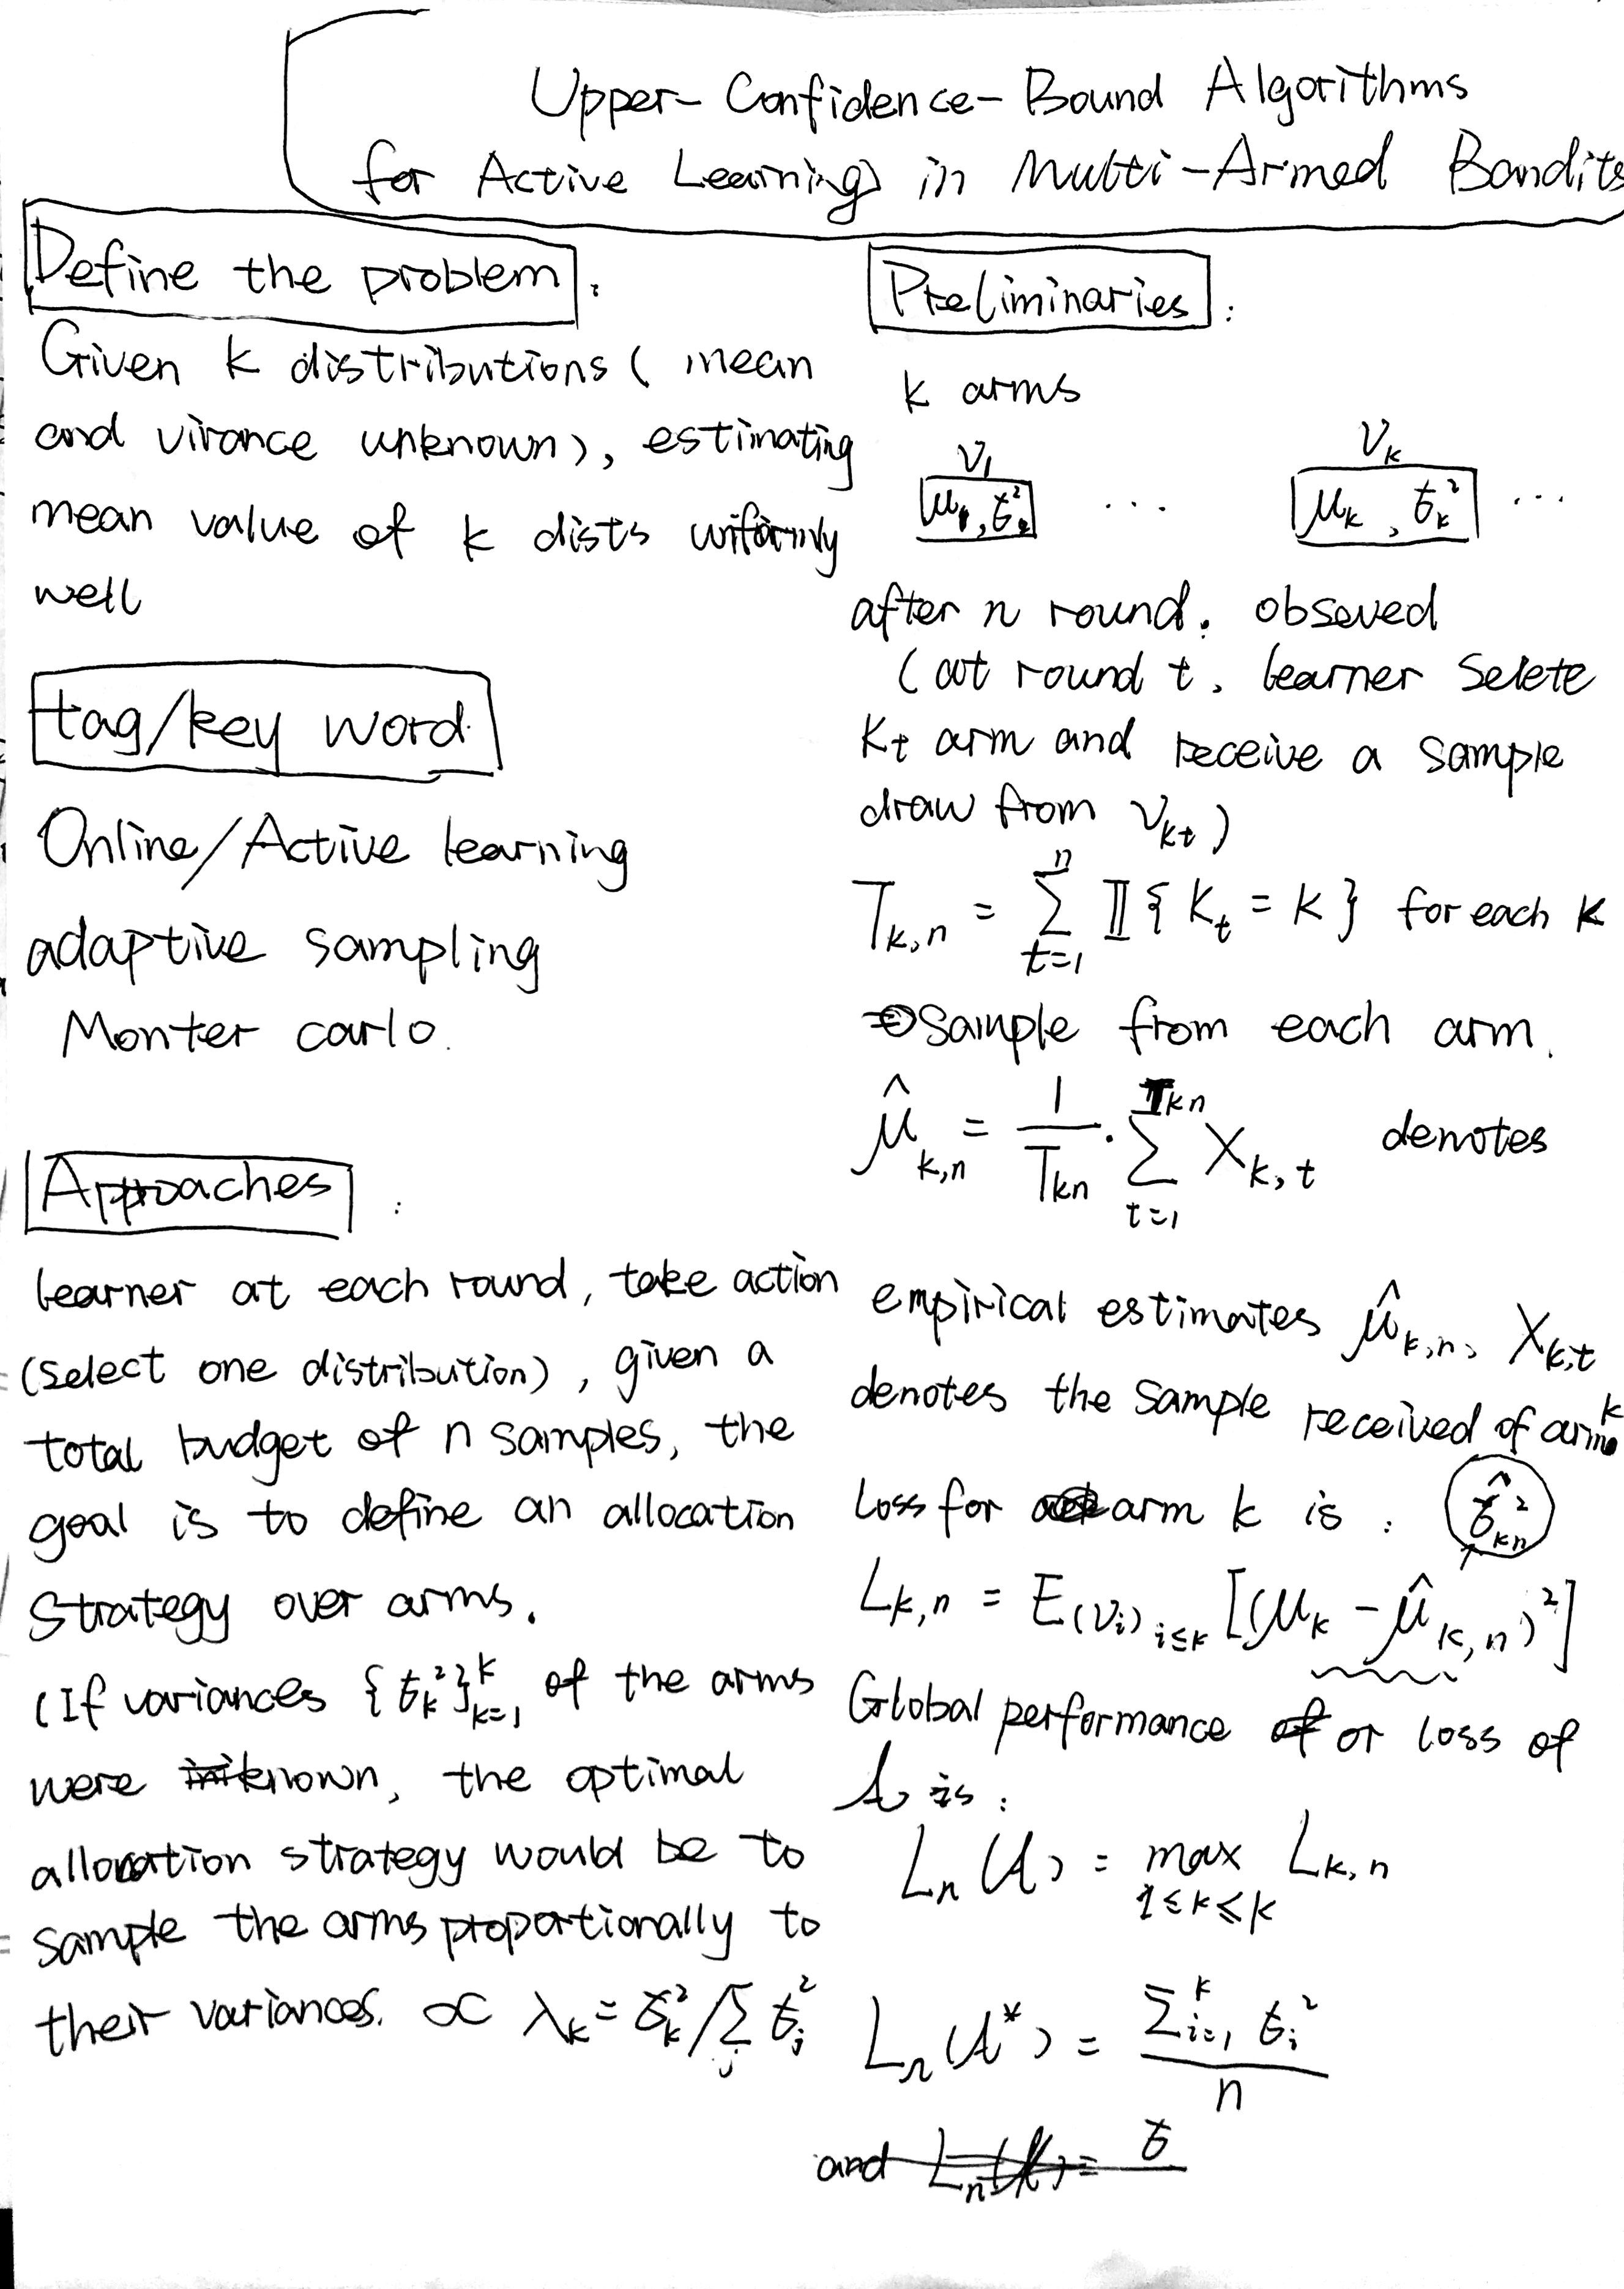 Upper-Confidence-Bound Algorithms
for Active Learning in Multi-Armed Bandits
Define the problem :
Given k distributions ( mean
and virance unknown), estimating
mean value of k dists uniformly
well
tag/key word
Online/Active learning
adaptive sampling
Monter carlo.
Approaches :
learner at each round, take action
(select one distribution), given a
total budget of n samples, the
goal is to define an allocation
strategy over arms.
(If variances {σ_k^2}_{k=1}^K of the arms
were known, the optimal
allocation strategy would be to
sample the arms proportionally to
their variances. ∝ λ_k = σ_k^2 / Σ_j σ_j^2
Preliminaries :
k arms
ν_1 ν_k
μ_1, σ_1^2 ... μ_k, σ_k^2 ...
after n round. obseved
(at round t, learner selete
K_t arm and receive a sample
draw from ν_{kt})
T_{k,n} = Σ_{t=1}^n 𝕀{K_t = k} for each k
sample from each arm.
μ̂_{k,n} = 1/T_{kn} · Σ_{t=1}^{T_{kn}} X_{k,t} denotes
empirical estimates μ̂_{k,n}, X_{k,t}
denotes the sample received of arm k
loss for arm k is : σ̂_{kn}^2
L_{k,n} = E_{(ν_i)_{i≤k}} [(μ_k - μ̂_{k,n})^2]
Global performance or loss of
A is :
L_n(A) = max_{1≤k≤K} L_{k,n}
L_n(A*) = Σ_{i=1}^k σ_i^2 / n
and L_n(A) = σ